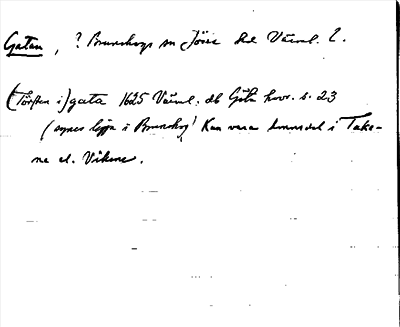 Gatan, ? Brunskogs sn Jösse hd Värml. l.
(Torsten i) gata 1625 Värml. db Göta hovr. s. 23
(synes ligga i Brunskog! Kan vara hemmadel i Take-
ne el. Vikene.